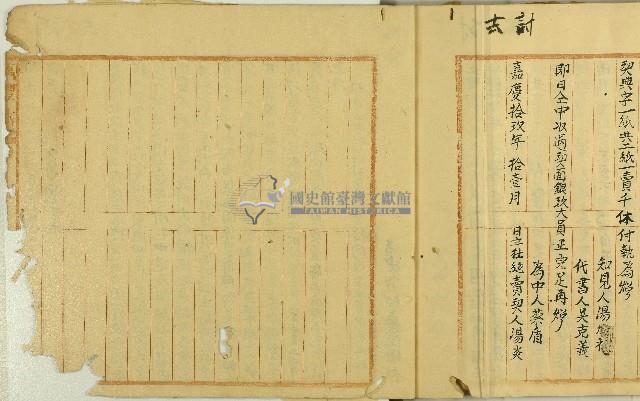 討去
契典字一紙共二紙一賣千休付執為炤
知見人湯
代書人吳克義
即日仝中收過契面銀玖大員正完足再炤
為中人蔡盾
嘉慶拾玖年拾壹月 日立杜絕賣契人湯炎
國史館臺灣文獻館
TAIWAN HISTORICA